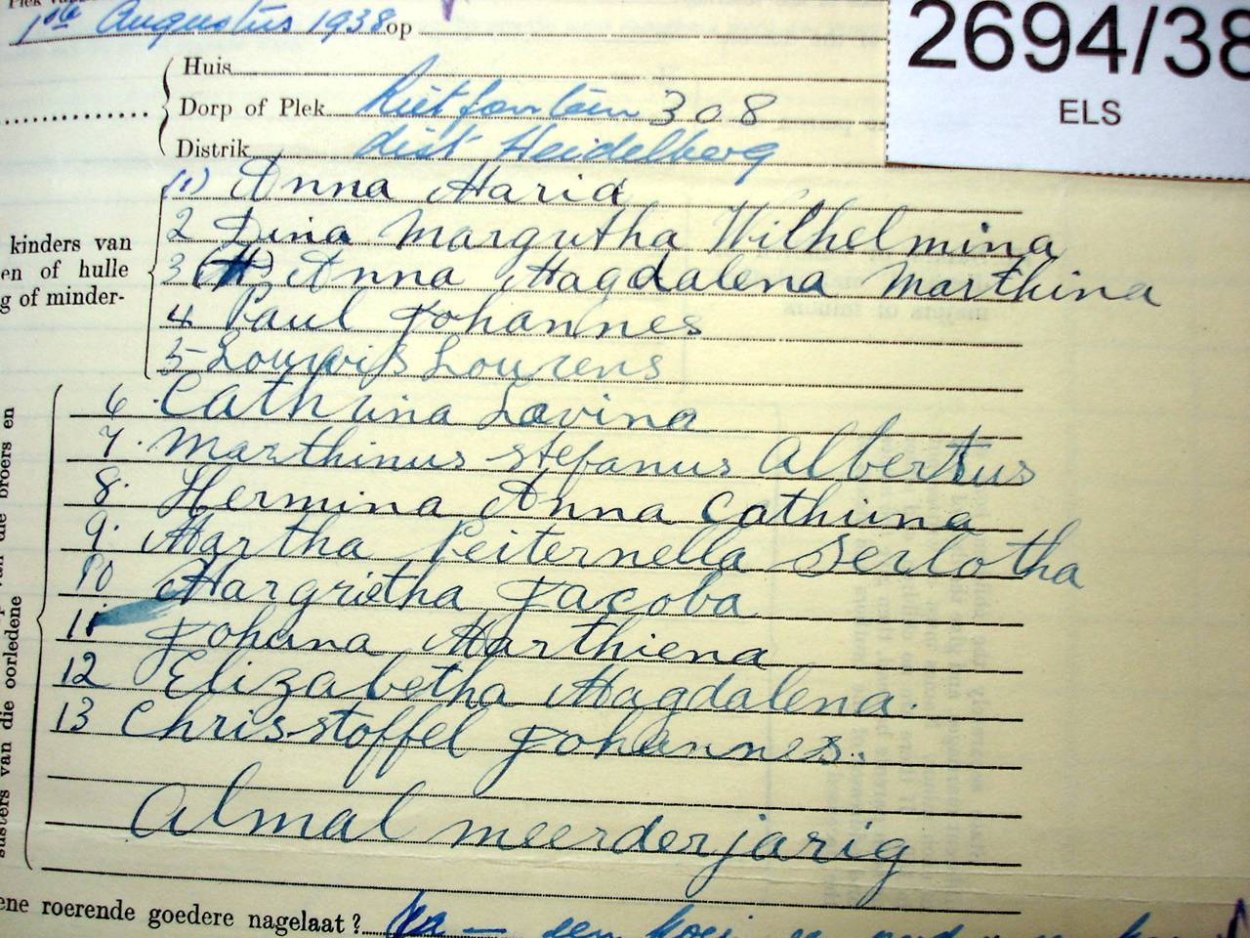 1ste Augustus 1938 op
2694/38
ELS
Huis
Dorp of Plek Rietfontein 308
Distrik dist Heidelberg
(1) Anna Maria
2 Dina Margretha Wilhelmina
kinders van
en of hulle
g of minder-
3 Anna Magdalena Marthina
4 Paul Johannes
5 Lourens
6 Cathrina Lavina
7. Marthinus Stefanus Albertus
8. Hermina Anna Cathrina
9. Martha Peiternella Serlotha
10 Margrietha Jacoba
11 Johana Marthiena
12 Elizabetha Magdalena.
13 Chrisstoffel Johannes.
susters van die oorledene
van die broers en
Almal meerderjarig
ene roerende goedere nagelaat? Ja — een koei